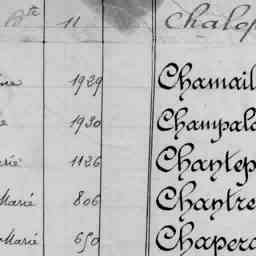 Bte 11 Chalop
ne 1929 Chamail
e 1930 Champala
rie 1126 Chantep
Marie 806 Chantre
Marie 650 Chapero